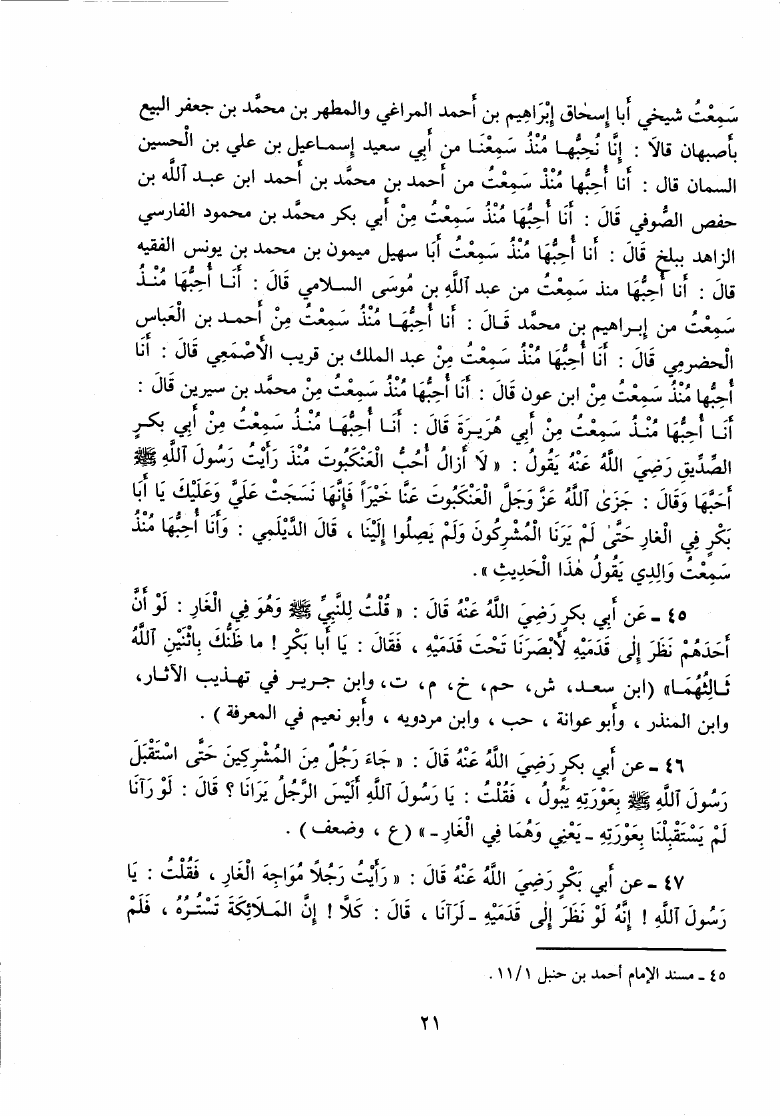 سَمِعْتُ شيخي أبا إسحاق إبْرَاهِيم بن أحمد المراغي والمطهر بن محمَّد بن جعفر البيع
بأصبهان قالَا : إنَّا نُحِبُّهـا مُنْذُ سَمِعْنَـا من أبي سعيد إسمـاعيل بن علي بن الْحسين
السمان قال : أنا أُحِبُّها مُنْذُ سَمِعْتُ من أحمد بن محمَّد بن أحمد ابن عبـد اللّه بن
حفص الصُّوفي قَالَ : أنَا أُحِبُّهَا مُنْذُ سَمِعْتُ مِنْ أبي بكر محمَّد بن محمود الفارسي
الزاهد ببلخ قَالَ : أنا أُحِبُّهَا مُنْذُ سَمِعْتُ أبَا سهيل ميمون بن محمد بن يونس الفقيه
قالَ : أنا أُحِبُّهَا منذ سَمِعْتُ من عبد اللّهِ بن مُوسَى السـلامي قَالَ : أنَـا أُحِبُّهَا مُنْـذُ
سَمِعْتُ من إبـراهيم بن محمَّد قَـالَ : أنا أُحِبُّهَـا مُنْذُ سَمِعْتُ مِنْ أحمـد بن الْعَبَّاس
الْحضرمِي قَالَ : أنَا أُحِبُّهَا مُنْذُ سَمِعْتُ مِنْ عبد الملك بن قريب الأصْمَعِي قَالَ : أنَا
أُحِبُّها مُنْذُ سَمِعْتُ مِنْ ابن عون قَالَ : أنَا أُحِبُّهَا مُنْذُ سَمِعْتُ مِنْ محمَّد بن سيرين قَالَ :
أنَـا أُحِبُّهَا مُنْـذُ سَمِعْتُ مِنْ أبي هُرَيـرَةَ قَالَ : أنَـا أُحِبُّهَـا مُنْـذُ سَمِعْتُ مِنْ أبي بكـرٍ
الصِّدِّيقِ رَضِيَ اللَّهُ عَنْهُ يَقُولُ : « لَا أزالُ أُحُبُّ الْعَنْكَبُوتَ مُنْذَ رَأيْتُ رَسُولَ اللّهِ ﷺ
أحَبَّهَا وَقَالَ : جَزَى اللّهُ عَزَّ وَجَلَّ الْعَنْكَبُوتَ عَنَّا خَيْرَاً فَإنَّهَا نَسَجَتْ عَلَيَّ وَعَلَيْكَ يَا أبَا
بَكْرٍ فِي الْغَارِ حَتَّى لَمْ يَرَنَا الْمُشْرِكُونَ وَلَمْ يَصِلُوا إلَيْنَا ، قَالَ الدَّيْلَمِي : وَأنَا أُحِبُّهَا مُنْذُ
سَمِعْتُ وَالِدِي يَقُولُ هٰذَا الْحَدِيثَ » .
٤٥ ـ عَن أبي بكرٍ رَضِيَ اللَّهُ عَنْهُ قَالَ : « قُلْتُ لِلنَّبِيِّ ﷺ وَهُوَ فِي الْغَارِ : لَوْ أنَّ
أحَدَهُمْ نَظَرَ إلَى قَدَمَيْهِ لأبْصَرَنَا تَحْتَ قَدَمَيْهِ ، فَقَالَ : يَا أبَا بَكْرٍ ! ما ظَنُّكَ بِاثْنَيْنِ اللّهُ
ثَـالِثُهُمَـا» (ابن سعـد، ش، حم، خ، م، ت، وابن جريـر في تهـذيب الآثـار،
وابن المنذر ، وأبو عوانة ، حب ، وابن مردويه ، وأبو نعيم في المعرفة ) .
٤٦ ـ عن أبي بكرٍ رَضِيَ اللَّهُ عَنْهُ قَالَ : « جَاءَ رَجُلٌ مِنَ الْمُشْرِكِينَ حَتَّى اسْتَقْبَلَ
رَسُولَ اللّهِ ﷺ بِعَوْرَتِهِ يَبُولُ ، فَقُلْتُ : يَا رَسُولَ اللّهِ ألَيْسَ الرَّجُلُ يَرَانَا ؟ قَالَ : لَوْ رَآنَا
لَمْ يَسْتَقْبِلْنَا بِعَوْرَتِهِ ـ يَعْنِي وَهُمَا فِي الْغَارِ ـ» (ع ، وضعف ) .
٤٧ ـ عن أبي بَكْرٍ رَضِيَ اللَّهُ عَنْهُ قَالَ : « رَأيْتُ رَجُلاً مُوَاجِهَ الْغَارِ ، فَقُلْتُ : يَا
رَسُولَ اللّهِ ! إنَّهُ لَوْ نَظَرَ إلَى قَدَمَيْهِ ـ لَرَآنَا ، قَالَ : كَلَّا ! إنَّ الْمَـلَائِكَةَ تَسْتُـرُهُ ، فَلَمْ
٤٥ ـ مسند الإمام أحمد بن حنبل ١١/١ .
٢١